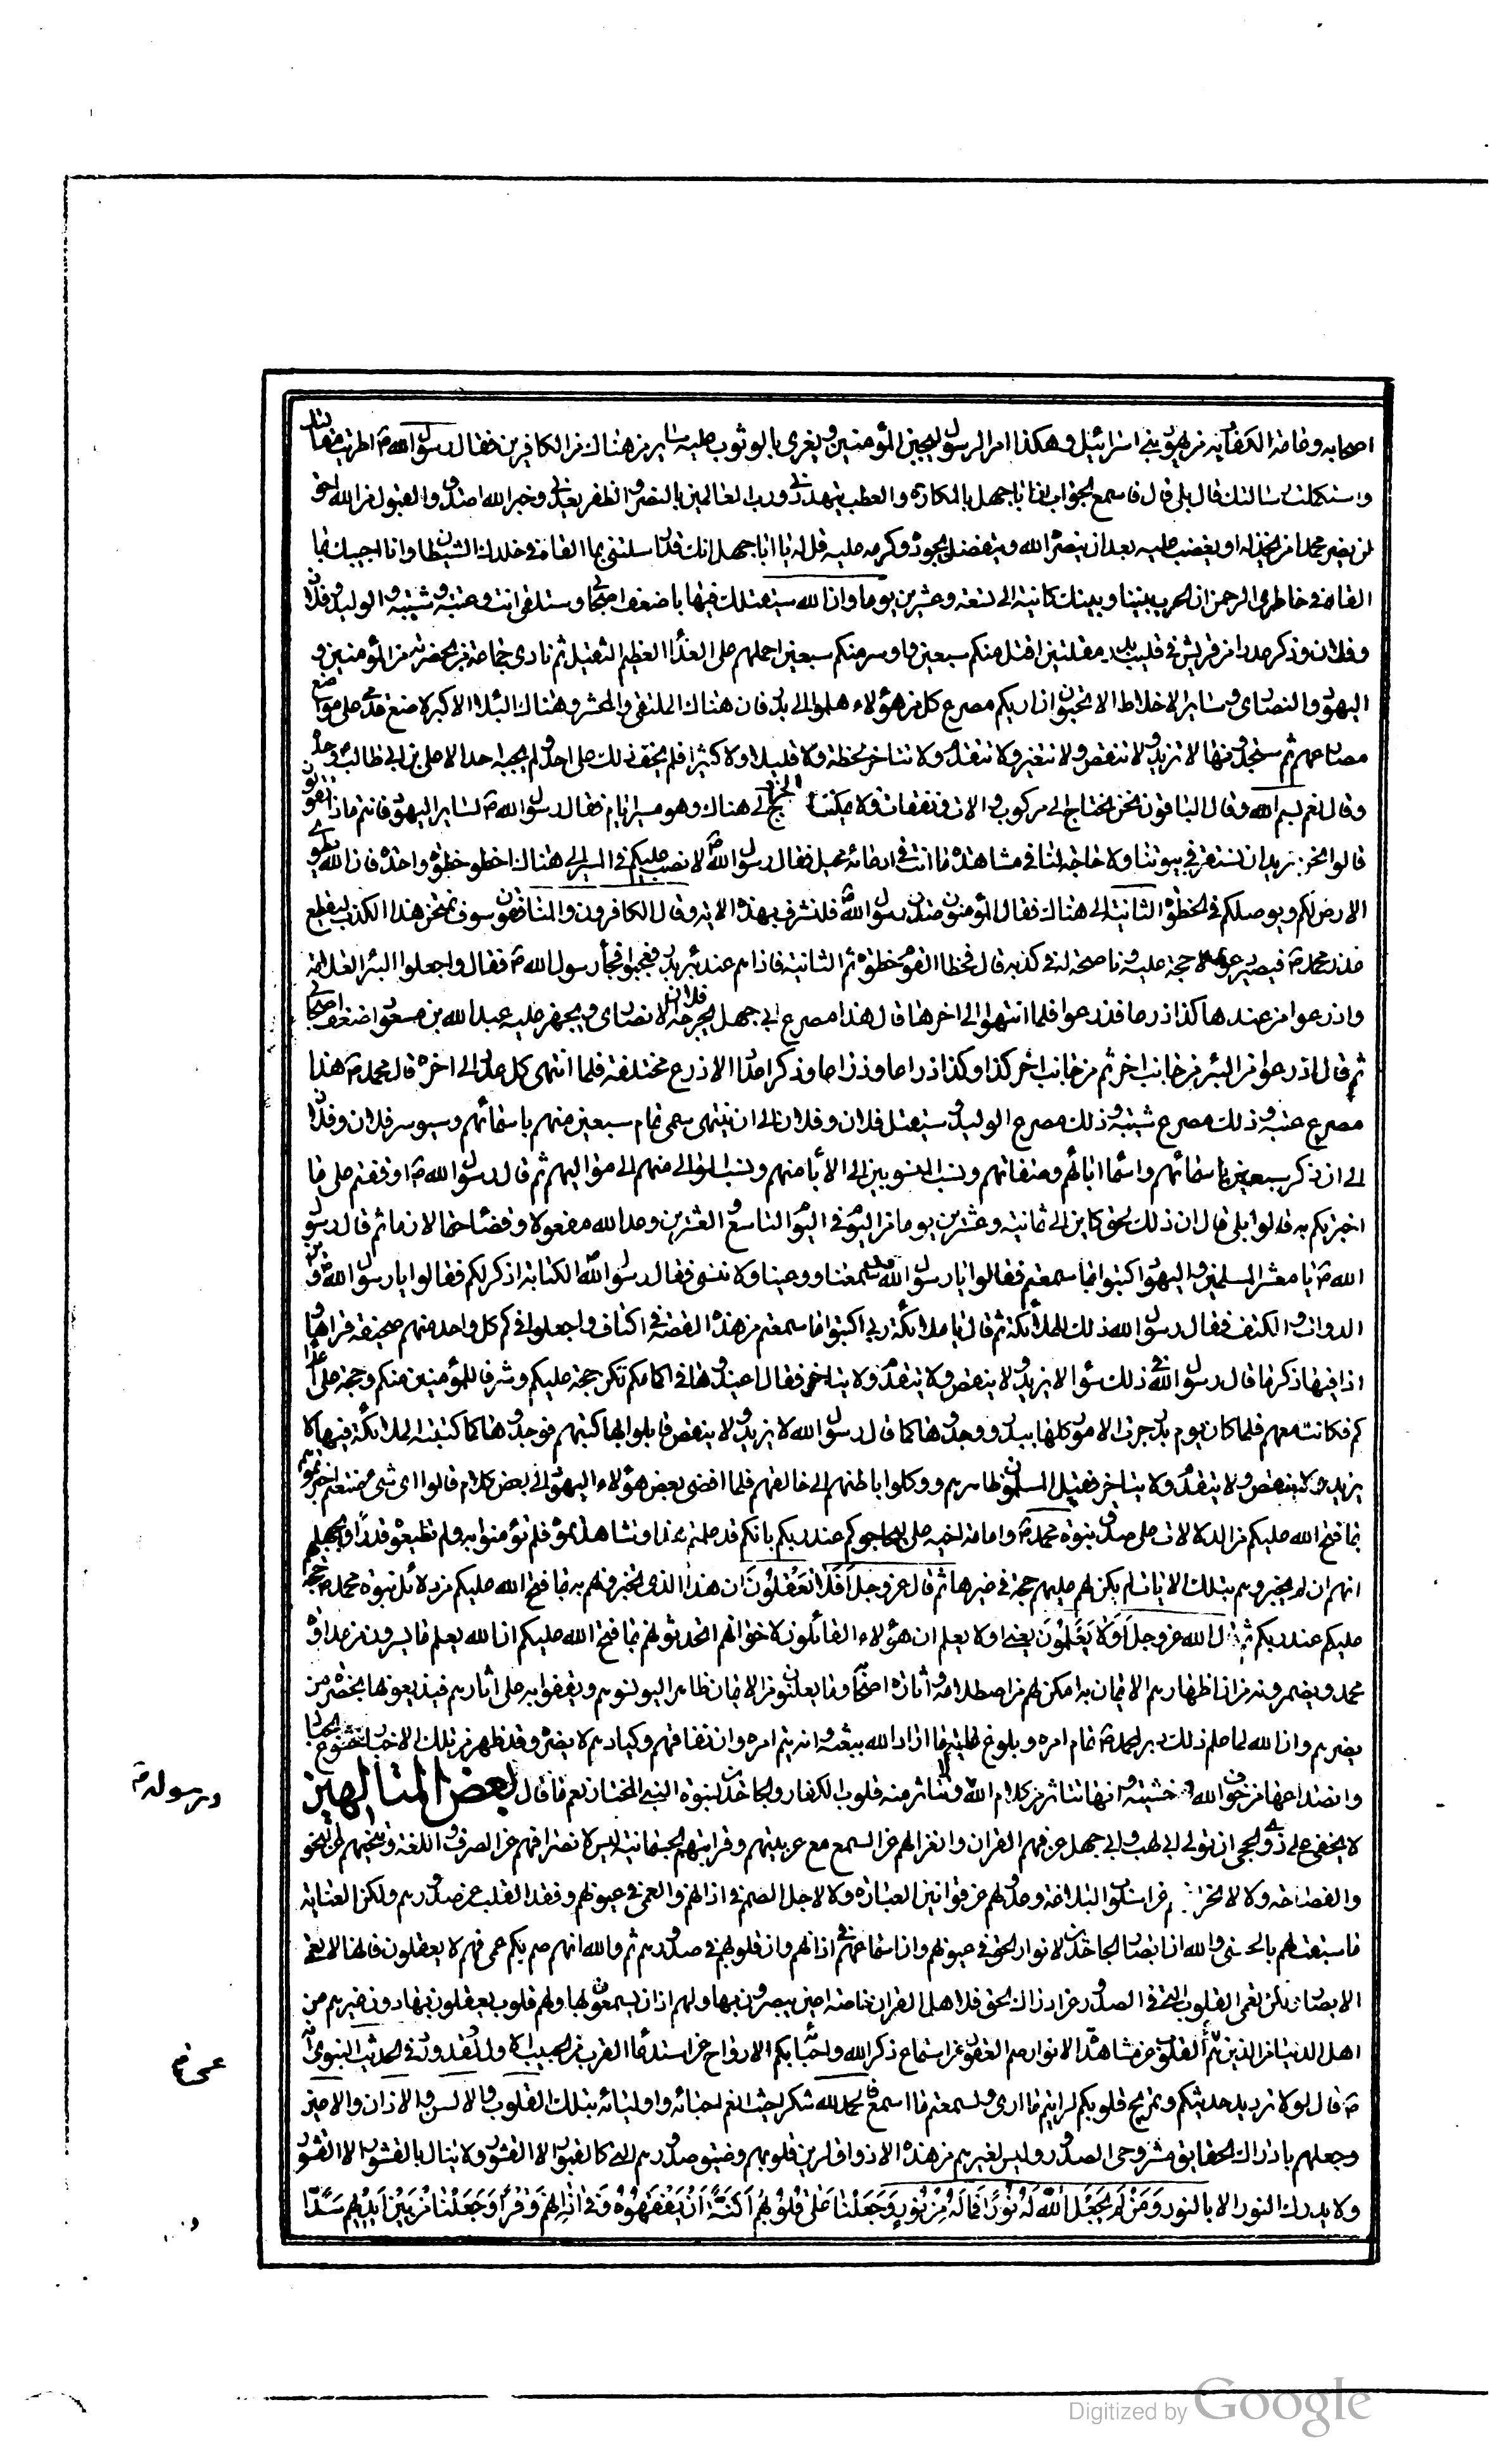 اصحابه وعامة الكفار به من يهود بني اسرائيل وهكذا امر الرسول ليجبن المؤمنين ويغرى بالوثوب عليه ساير من هناك من الكافرين فقال رسول الله ص اطريت مقالتك
واستكملت رسالتك قال بلى قال فاسمع الجواب ان ابا جهل بالمكاره والعطب يتهددني ورب العالمين بالنصر والظفر يعدني وخبر الله اصدق والقبول من الله احق
لن يضر محمدا من يخذله او يغضب عليه بعد ان ينصره الله ويتفضل بجوده وكرمه عليه قل له يا ابا جهل انك قد راسلتني بما القاه في خلدك الشيطان وانا اجيبك بما
القاه في خاطري الرحمن ان الحرب بيننا وبينك كائنة الى تسعة وعشرين يوما وان الله سيقتلك فيها باضعف اصحابي وستلقى انت وعتبة وشيبة والوليد وفلان
وفلان وذكر عددا من قريش في قليب بدر مقتلين اقتل منكم سبعين واوسر منكم سبعين احملهم على الفداء العظيم الثقيل ثم نادى جماعة من بحضرته من المؤمنين و
اليهود والنصارى وساير الاخلاط الا تحبون ان اريكم مصرع كل من هؤلاء هلموا الى بدر فان هناك الملتقى والمحشر وهناك البلاء الاكبر لاضع قدمي على مواضع
مصارعهم ثم ستجدونها لا تزيد ولا تنقص ولا تتغير ولا تتقدم ولا تتاخر لحظة ولا قليلا ولا كثيرا فلم يخف ذلك على احد ولم يجبه احد الا علي بن ابي طالب وحده
وقال نعم بسم الله وقال الباقون نحن نحتاج الى مركوب والات ونفقات ولا يمكننا الخروج الى هناك وهو مسيرة ايام فقال رسول الله ص لساير اليهود فانتم ماذا تقولون
قالوا نحن نريد ان نستقر في بيوتنا ولا حاجة لنا في مشاهدة ما انت في ادعائه محيل فقال رسول الله ص لا نصب عليكم في المسير الى هناك اخطو خطوة واحدة فان الله يطوى
الارض لكم ويوصلكم في الخطوة الثانية الى هناك فقال المؤمنون صدق رسول الله ص فلنشرف بهذه الاية وقال الكافرون والمنافقون سوف نمتحن هذا الكذب لينقطع
عذر محمد ص فيصير دعواه حجة عليه وفاضحة له في كذبه قال فخطا القوم خطوة ثم الثانية فاذا هم عند بئر بدر فعجبوا فجاء رسول الله ص فقال واجعلوا البئر العلامة
واذرعوا من عندها كذا ذرعا فذرعوا فلما انتهوا الى اخرها قال هذا مصرع ابي جهل يجرحه فلان الانصارى ويجهز عليه عبد الله بن مسعود اضعف اصحابي
ثم قال اذرعوا من البئر من جانب اخر ثم من جانب اخر كذا وكذا ذراعا وذراعا وذكر اعداد الاذرع مختلفة فلما انتهى كل عدد الى اخره قال محمد ص هذا
مصرع عتبة وذلك مصرع شيبة وذلك مصرع الوليد وسيقتل فلان وفلان الى ان ينتهى سمى تمام سبعين منهم باسمائهم وسيوسر فلان وفلان
الى ان ذكر سبعين باسمائهم واسماء ابائهم وصفاتهم ونسب المنسوبين الى الاباء منهم ونسب الموالى منهم الى مواليهم ثم قال رسول الله ص اوقفتم على ما
اخبرتكم به قالوا بلى قال ان ذلك لحق كاين الى ثمانية وعشرين يوما من اليوم في اليوم التاسع والعشرين وعدا من الله مفعولا وقضاء حتما لازما ثم قال رسول
الله ص يا معشر المسلمين واليهود اكتبوا بما سمعتم فقالوا يا رسول الله قد سمعنا ووعينا ولا ننسى فقال رسول الله ص الكتابة اذكر لكم فقالوا يا رسول الله ص واين
الدوات والكتف فقال رسول الله ذلك للملائكة ثم قال يا ملائكة ربي اكتبوا ما سمعتم من هذه القصة في اكتاف واجعلوا في كم كل واحد منهم صحيفة فقراوها
اذا فيها ذكر ما قال رسول الله ص في ذلك سواء لا يزيد ولا ينقص ولا يتقدم ولا يتاخر فقال اعيدوها في اكمامكم تكن حجة عليكم وشرفا للمؤمنين منكم وحجة على اعدائ
كم فكانت معهم فلما كان يوم بدر جرت الامور كلها ببدر ووجدوها كما قال رسول الله لا يزيد ولا ينقص قابلوا بها كتبهم فوجدوها كما كتبته الملائكة فيها لا
يزيد ولا ينقص ولا يتقدم ولا يتاخر فقبل المسلمون ظاهرهم ووكلوا باطنهم الى خالقهم فلما افضى بعض هؤلاء اليهود الى بعض كلام قالوا اى شئ صنعتم اخبرتموهم
بما فتح الله عليكم من الدلالات على صدق نبوة محمد ص وامامة اخيه على ليحاجوكم عند ربكم بانكم قد علمتم هذا وشاهدتموه فلم تؤمنوا به ولم تطيعوه وقدروا بجهلهم
انهم ان لم يخبروهم بتلك الايات لم يكن لهم عليهم حجة في غيرها ثم قال عز وجل أَفَلا تَعْقِلُونَ ان هذا الذى تخبرونهم به بما فتح الله عليكم من دلائل نبوة محمد ص حجة
عليكم عند ربكم ثم قال الله عز وجل أَوَلا يَعْلَمُونَ يعنى اولا يعلم ان هؤلاء القائلون لاخوانهم اتحدثونهم بما فتح الله عليكم ان الله يعلم ما يسرون من عداوة
محمد ويضمرونه من ان اظهارهم الايمان به امكن لهم من اصطلامه وابارة اصحابه وما يعلنون من الايمان ظاهرا ليونسوهم ويقفوا به على اثارهم فيذيعونها بحضرة من
يضرهم وان الله لما علم ذلك دبر لمحمد ص تمام امره وبلوغ غاية ما اراد الله ببعثه وانه يتم امره وان نفاقهم وكيادهم لا يضره وقد ظهر من تلك الاخبار خشوع الجبال
وانصداعها من خوف الله وخشيته وانها تتاثر من كلام الله ولا تتاثر منه قلوب الكفار والجاحدين لنبوة النبي المختار نعم ما قال بعض المتالهين
لا يخفى على ذوى الحجى ان تولى ابي لهب وابي جهل عن فهم القران وانعزالهم عن السمع مع عربيتهم وقرابتهم الجسمانية ليس لانصرافهم عن الصرف واللغة وتنحيهم عن النحو
والفصاحة ولا لا نحرافهم عن اسلوب البلاغة وعدولهم عن قوانين العبارة ولا لاجل الصمم في اذانهم والعمى في عيونهم وفقد القلب عن صدورهم ولكن العناية
ما سبقت لهم بالحسنى والله ان ابصار الجاحدين لانوار الحق في عيونهم وان اسماعهم في اذانهم وان قلوبهم في صدورهم ثم والله انهم صم بكم عمى فهم لا يعقلون فانها لا تعمى
الابصار ولكن تعمى القلوب التي في الصدور عن ادراك الحق فلاهل القران خاصة اعين يبصرون بها ولهم اذان يسمعون بها ولهم قلوب يعقلون بها دون غيرهم من
اهل الدنيا من الذين عمى القلوب عن مشاهدة الانوار صم العقول عن استماع ذكر الله واحبابه بكم الارواح عن استدعاء القرب من الحبيب في الحديث النبوى انه
ص قال لولا تزييد حديثكم وتمريج قلوبكم لرايتم ما ارى ولسمعتم ما اسمع فالحمد لله شكرا حيث انعم احبائه واوليائه بتلك القلوب والالسن والاذان والاعين
وجعلهم بادراك الحقايق مشروحى الصدور وليس لغيرهم من هذه الاذواق لرين قلوبهم وضيق صدورهم التي كالقبور الا القشور ولا ينال بالقشور الا القشور
ولا يدرك النور الا بالنور وَمَنْ لَمْ يَجْعَلِ اللَّهُ لَهُ نُورًا فَمَا لَهُ مِنْ نُورٍ وَجَعَلْنَا عَلَى قُلُوبِهِمْ أَكِنَّةً أَنْ يَفْقَهُوهُ وَفِي آذَانِهِمْ وَقْرًا وَجَعَلْنَا مِنْ بَيْنِ أَيْدِيهِمْ سَدًّا
ورسوله ص
Digitized by Google